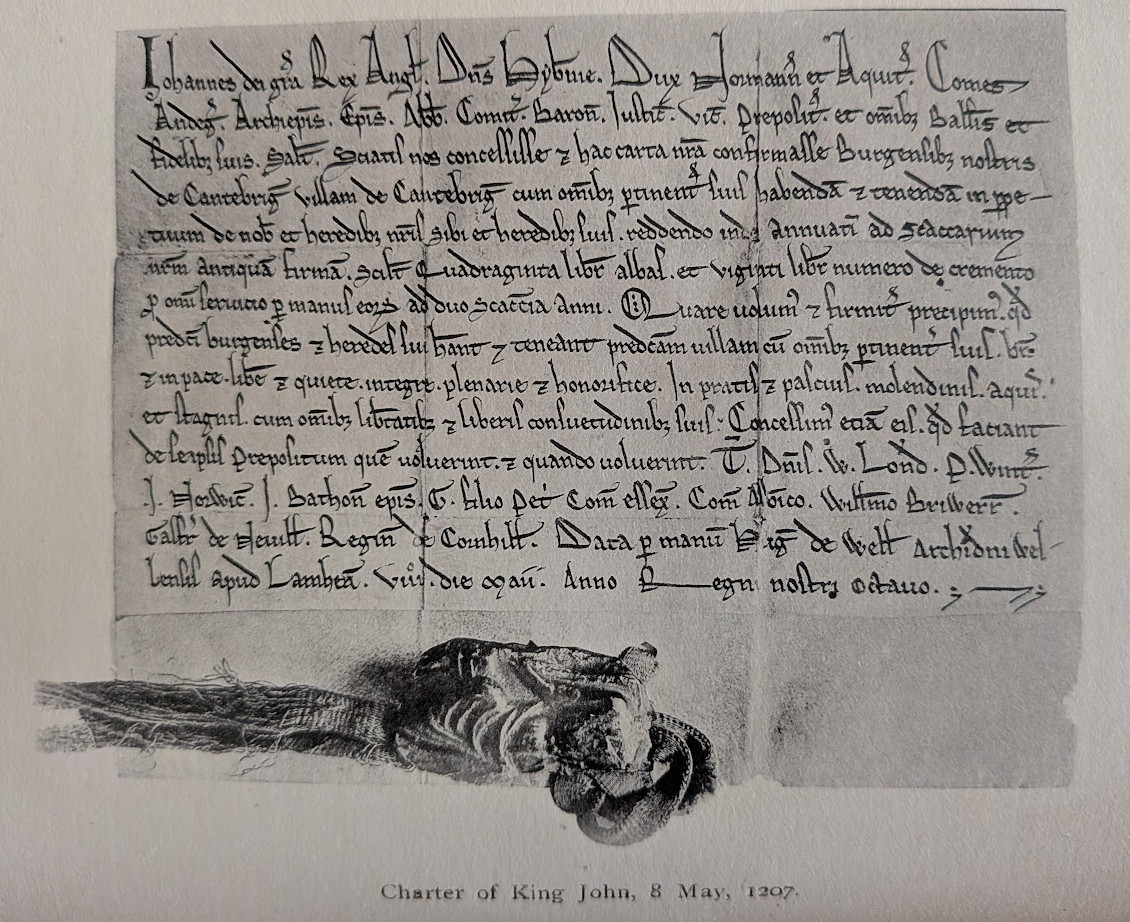 Iohannes dei grã Rex Angł. Dñs Hybñie. Dux Normanñ et Aquit̃. Comes
Andeg̃. Archiepis̃. Epis̃. Abb̃. Comit̃. Baroñ. Justic̃. Vic̃. Preposit̃. et om̃ibȝ Balłis et
fidelibȝ suis. Salt̃. Sciatis nos concessisse ⁊ hac carta nr̃a confirmasse Burgensibȝ nostris
de Cantebrig̃ villam de Cantebrig̃ cum om̃ibȝ ꝑtinent̃ suis habendã ⁊ tenendã in ꝑpe-
tuum de nob̃ et heredibȝ nr̃is sibi et heredibȝ suis. reddendo inde annuatĩ ad scaccarium
nr̃m antiquã firmã. Scilt̃ Quadraginta libr̃ albas. et viginti libr̃ numero de cremento
ꝑ om̃i seruicio ꝑ manus eoꝝ ad duo scacc̃ia Anni. Quare volum᷒ ⁊ firmit̃ precipim᷒. qd̃
predc̃i burgenses ⁊ heredes sui hãnt ⁊ teneant predc̃am uillam cũ om̃ibȝ ꝑtinent̃ suis. bñ
⁊ in pace. libe ⁊ quiete. integre. plenarie ⁊ honorifice. In pratis ⁊ pascuis. molendinis. aquis.
et stagnis. cum om̃ibȝ lib̃tatibȝ ⁊ liberis consuetudinibȝ suis. Concessim᷒ etiã eis. qd̃ faciant
de seipsis Prepositum quẽ voluerint. ⁊ quando uoluerint. T̃. Dñis. W. Lond̃. P. Wint̃.
J. Norwic̃. J. Bathoñ epis̃. G. filio Pet̃ Com̃ essex̃. Com̃ Albico. Willm̃o Briwerr̃.
Galfr̃ de Neuilł. Regiñ de Cornhilł. Data ꝑ manũ Hug̃ de Well Archid̃ni Wel-
lensis apud Lamheã. viij. die Maii. Anno Regni nostri octauo.
Charter of King John, 8 May, 1207.